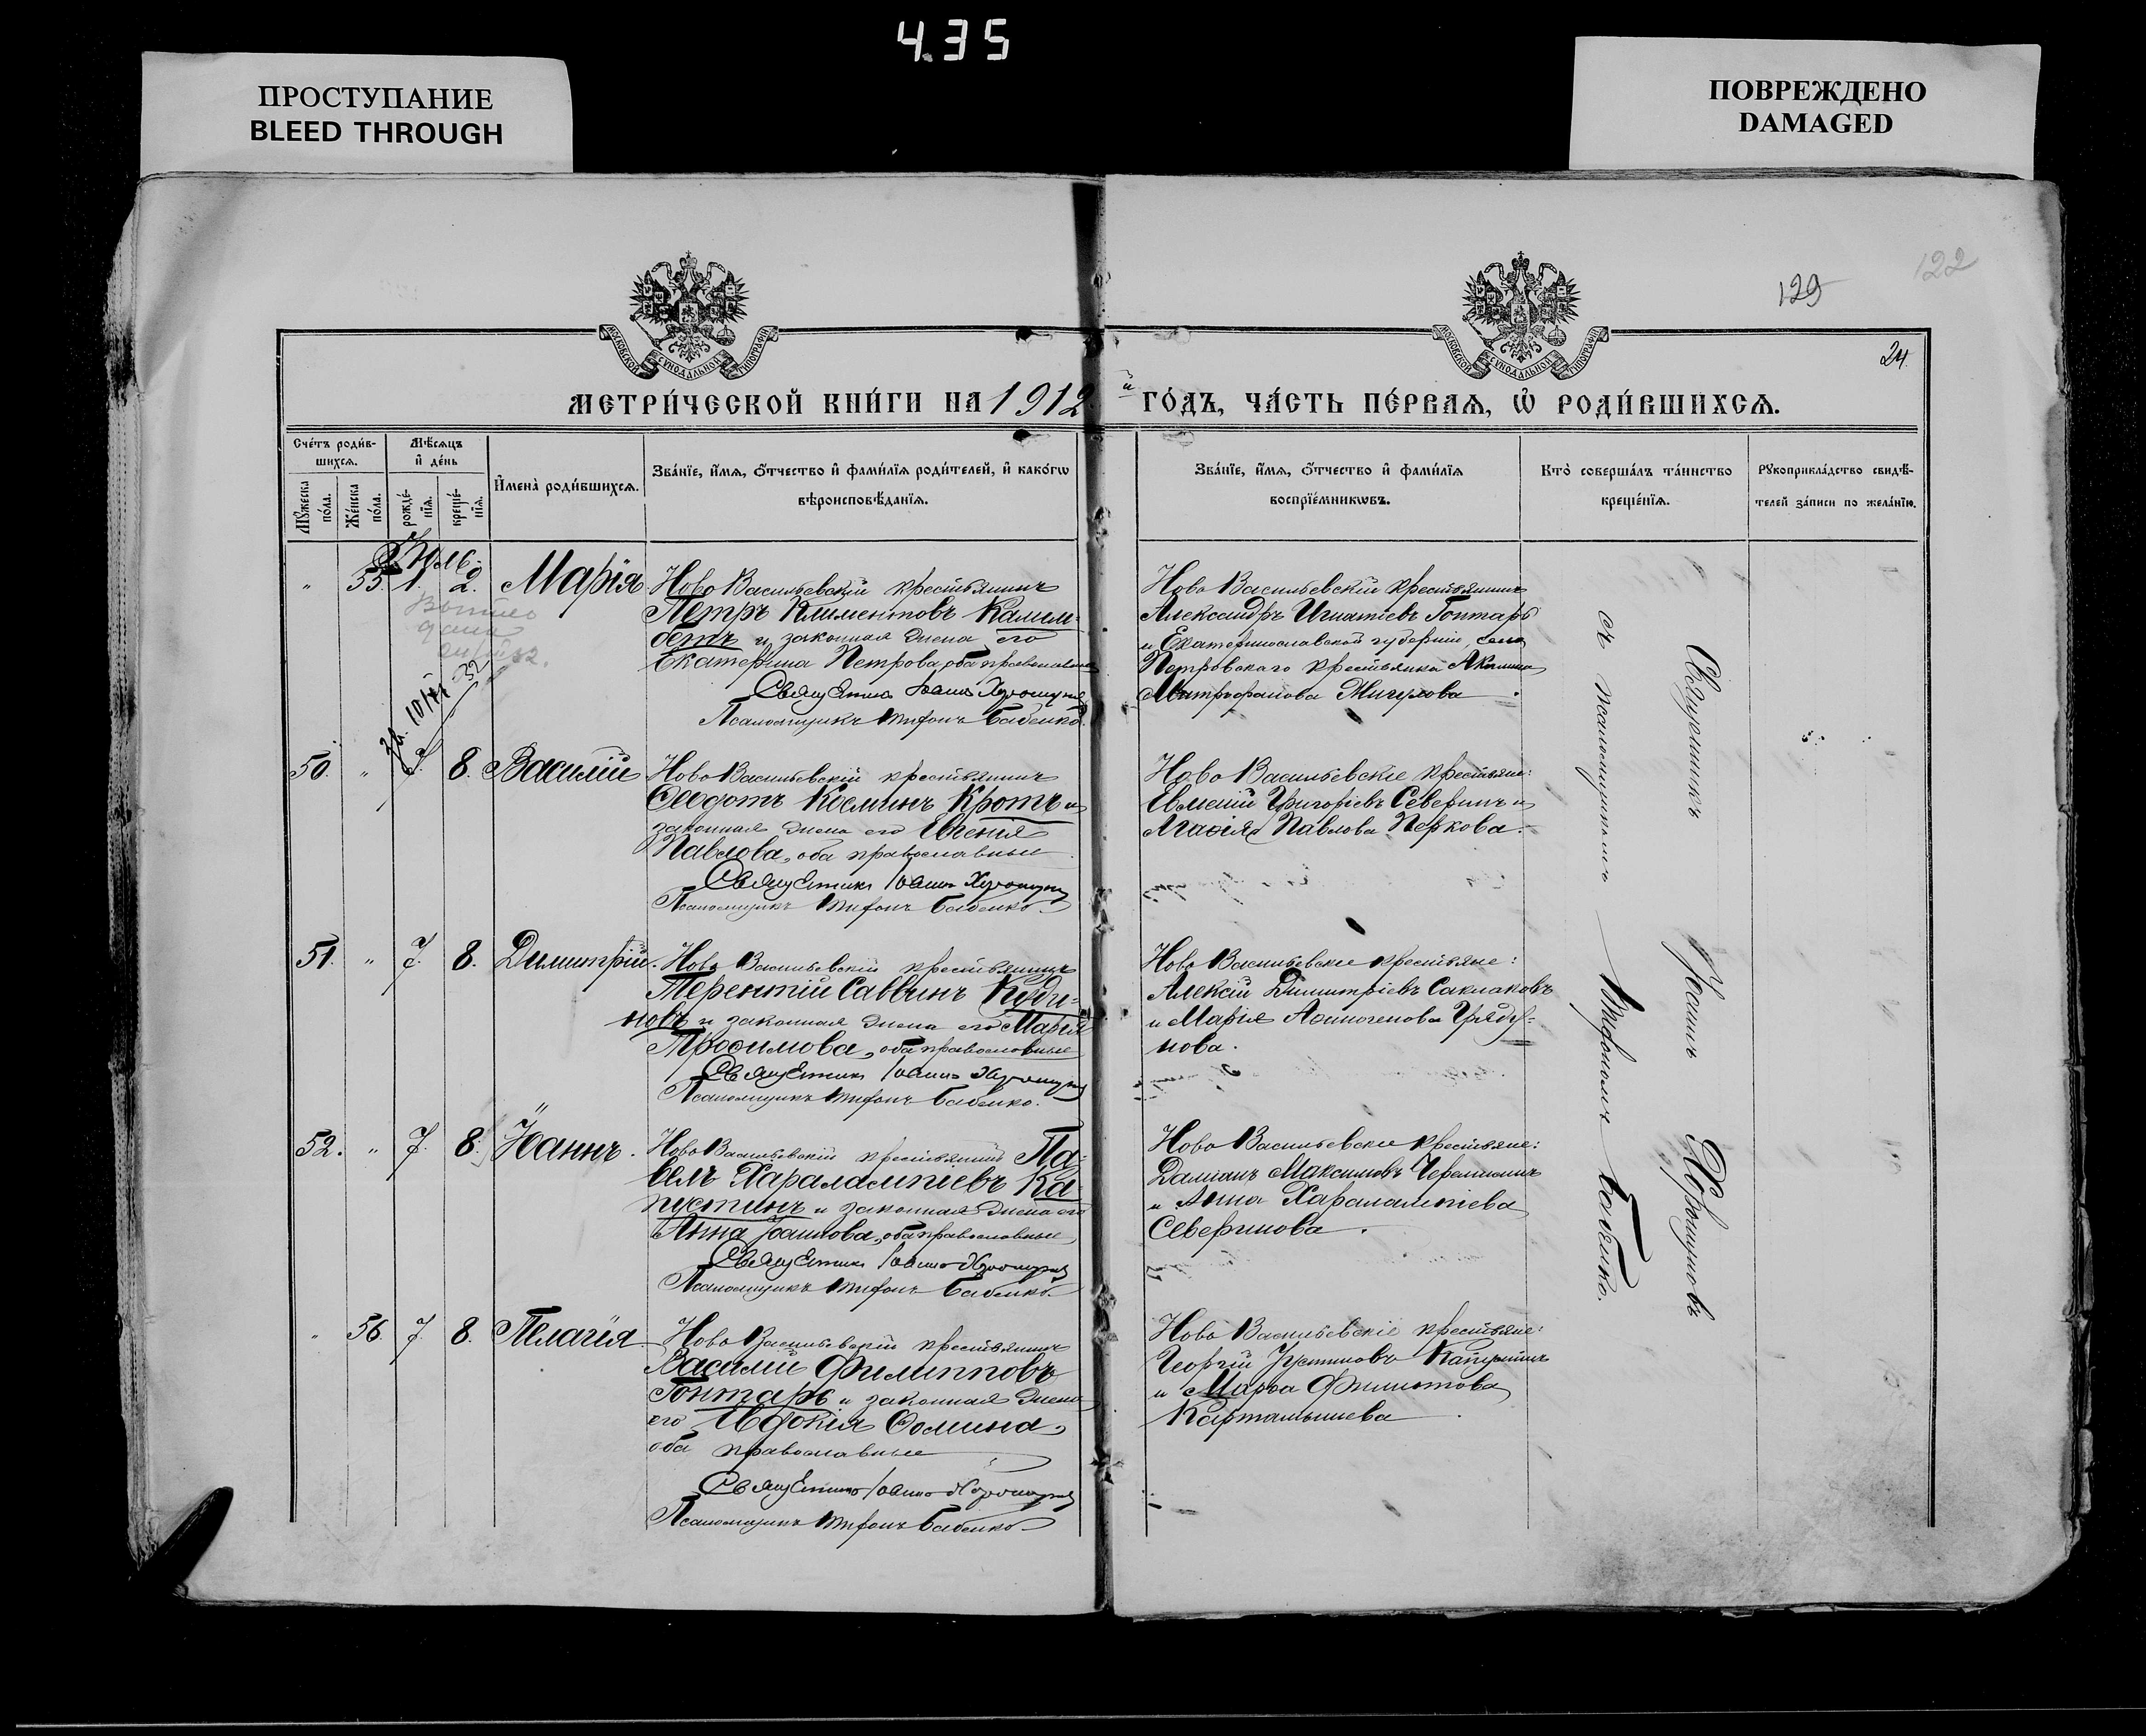 4.35
ПРОСТУПАНИЕ
BLEED THROUGH
ПОВРЕЖДЕНО
DAMAGED
122
129
24.
МОСКОВСКОЙ СѴНОДАЛЬНОЙ ТИПОГРАФІИ
МОСКОВСКОЙ СѴНОДАЛЬНОЙ ТИПОГРАФІИ
МЕТРИ́ЧЕСКОЙ КНИ́ГИ НА 1912 й ГО́ДЪ, ЧА́СТЬ ПЕ́РВАѦ, Ѡ҆ РОДИ́ВШИХСѦ.
Сче́тъ роди́в-
шихсѧ.
Мꙋ́жеска по́ла.
Же́нска по́ла.
Мѣ́сѧцъ
и҆ де́нь
рожде́-
нїѧ.
креще́-
нїѧ.
И҆мена̀ роди́вшихсѧ.
Зва́нїе, и҆́мѧ, ѻ҆́тчество и҆ фами́лїѧ роди́телей, и҆ како́гѡ
вѣроисповѣ́данїѧ.
Зва́нїе, и҆́мѧ, ѻ҆́тчество и҆ фами́лїѧ
воспрїе́мникѡвъ.
Кто̀ соверша́лъ та́инство
креще́нїѧ.
Рꙋкоприкла́дство свидѣ́-
телей за́писи по жела́нїю.
Іюль.
" 55. 1. 2. Марія
Ново Васильевскій крестьянинъ
Петръ Климентовъ
и законная жена его
Екатерина Петрова, оба православные
Священникъ Іоаннъ Хорошуновъ
Псаломщикъ Трифонъ Бабенко.
Ново Васильевскій крестьянинъ
Александръ Игнатіевъ Гонтарь
и Екатеринославской губерніи, села
Петровскаго крестьянка Акилина
Митрофанова
50. " 8. Василій
Ново Васильевскій крестьянинъ
Ѳеодотъ Косминъ Кротъ и
законная жена его Евгенія
Павлова, оба православные
Священникъ Іоаннъ Хорошуновъ
Псаломщикъ Трифонъ Бабенко.
Ново Васильевскіе крестьяне:
Григоріевъ Северинъ и
Агаѳія Павлова Перкова.
51. " 7. 8. Димитрій.
Ново Васильевскій крестьянинъ
Терентій Саввинъ Коди-
новъ и законная жена его Марія
Троѳимова, оба православные
Священникъ Іоаннъ Хорошуновъ
Псаломщикъ Трифонъ Бабенко.
Ново Васильевскіе крестьяне:
Алексій Димитріевъ Саклаковъ
и Марія Аѳиногенова Гряду-
нова.
52. " 7. 8. Іоаннъ.
Ново Васильевскій крестьянинъ Па-
велъ Харалампіевъ Ка-
пустинъ и законная жена его
Анна Іоаннова, оба православные
Священникъ Іоаннъ Хорошуновъ
Псаломщикъ Трифонъ Бабенко.
Ново Васильевскіе крестьяне:
Даміанъ Максимовъ
и Анна Харалампіева
Северинова.
" 56. 7. 8. Пелагія
Ново Васильевскій крестьянинъ
Василій Филипповъ
Гонтарь и законная жена
его Евдокія Ѳомина,
оба православные
Священникъ Іоаннъ Хорошуновъ
Псаломщикъ Трифонъ Бабенко.
Ново Васильевскіе крестьяне:
Георгій Іустиновъ
и Марѳа Филиппова
Картамышева.
Священникъ Іоаннъ Хорошуновъ
съ псаломщикомъ Трифономъ Бабенко.